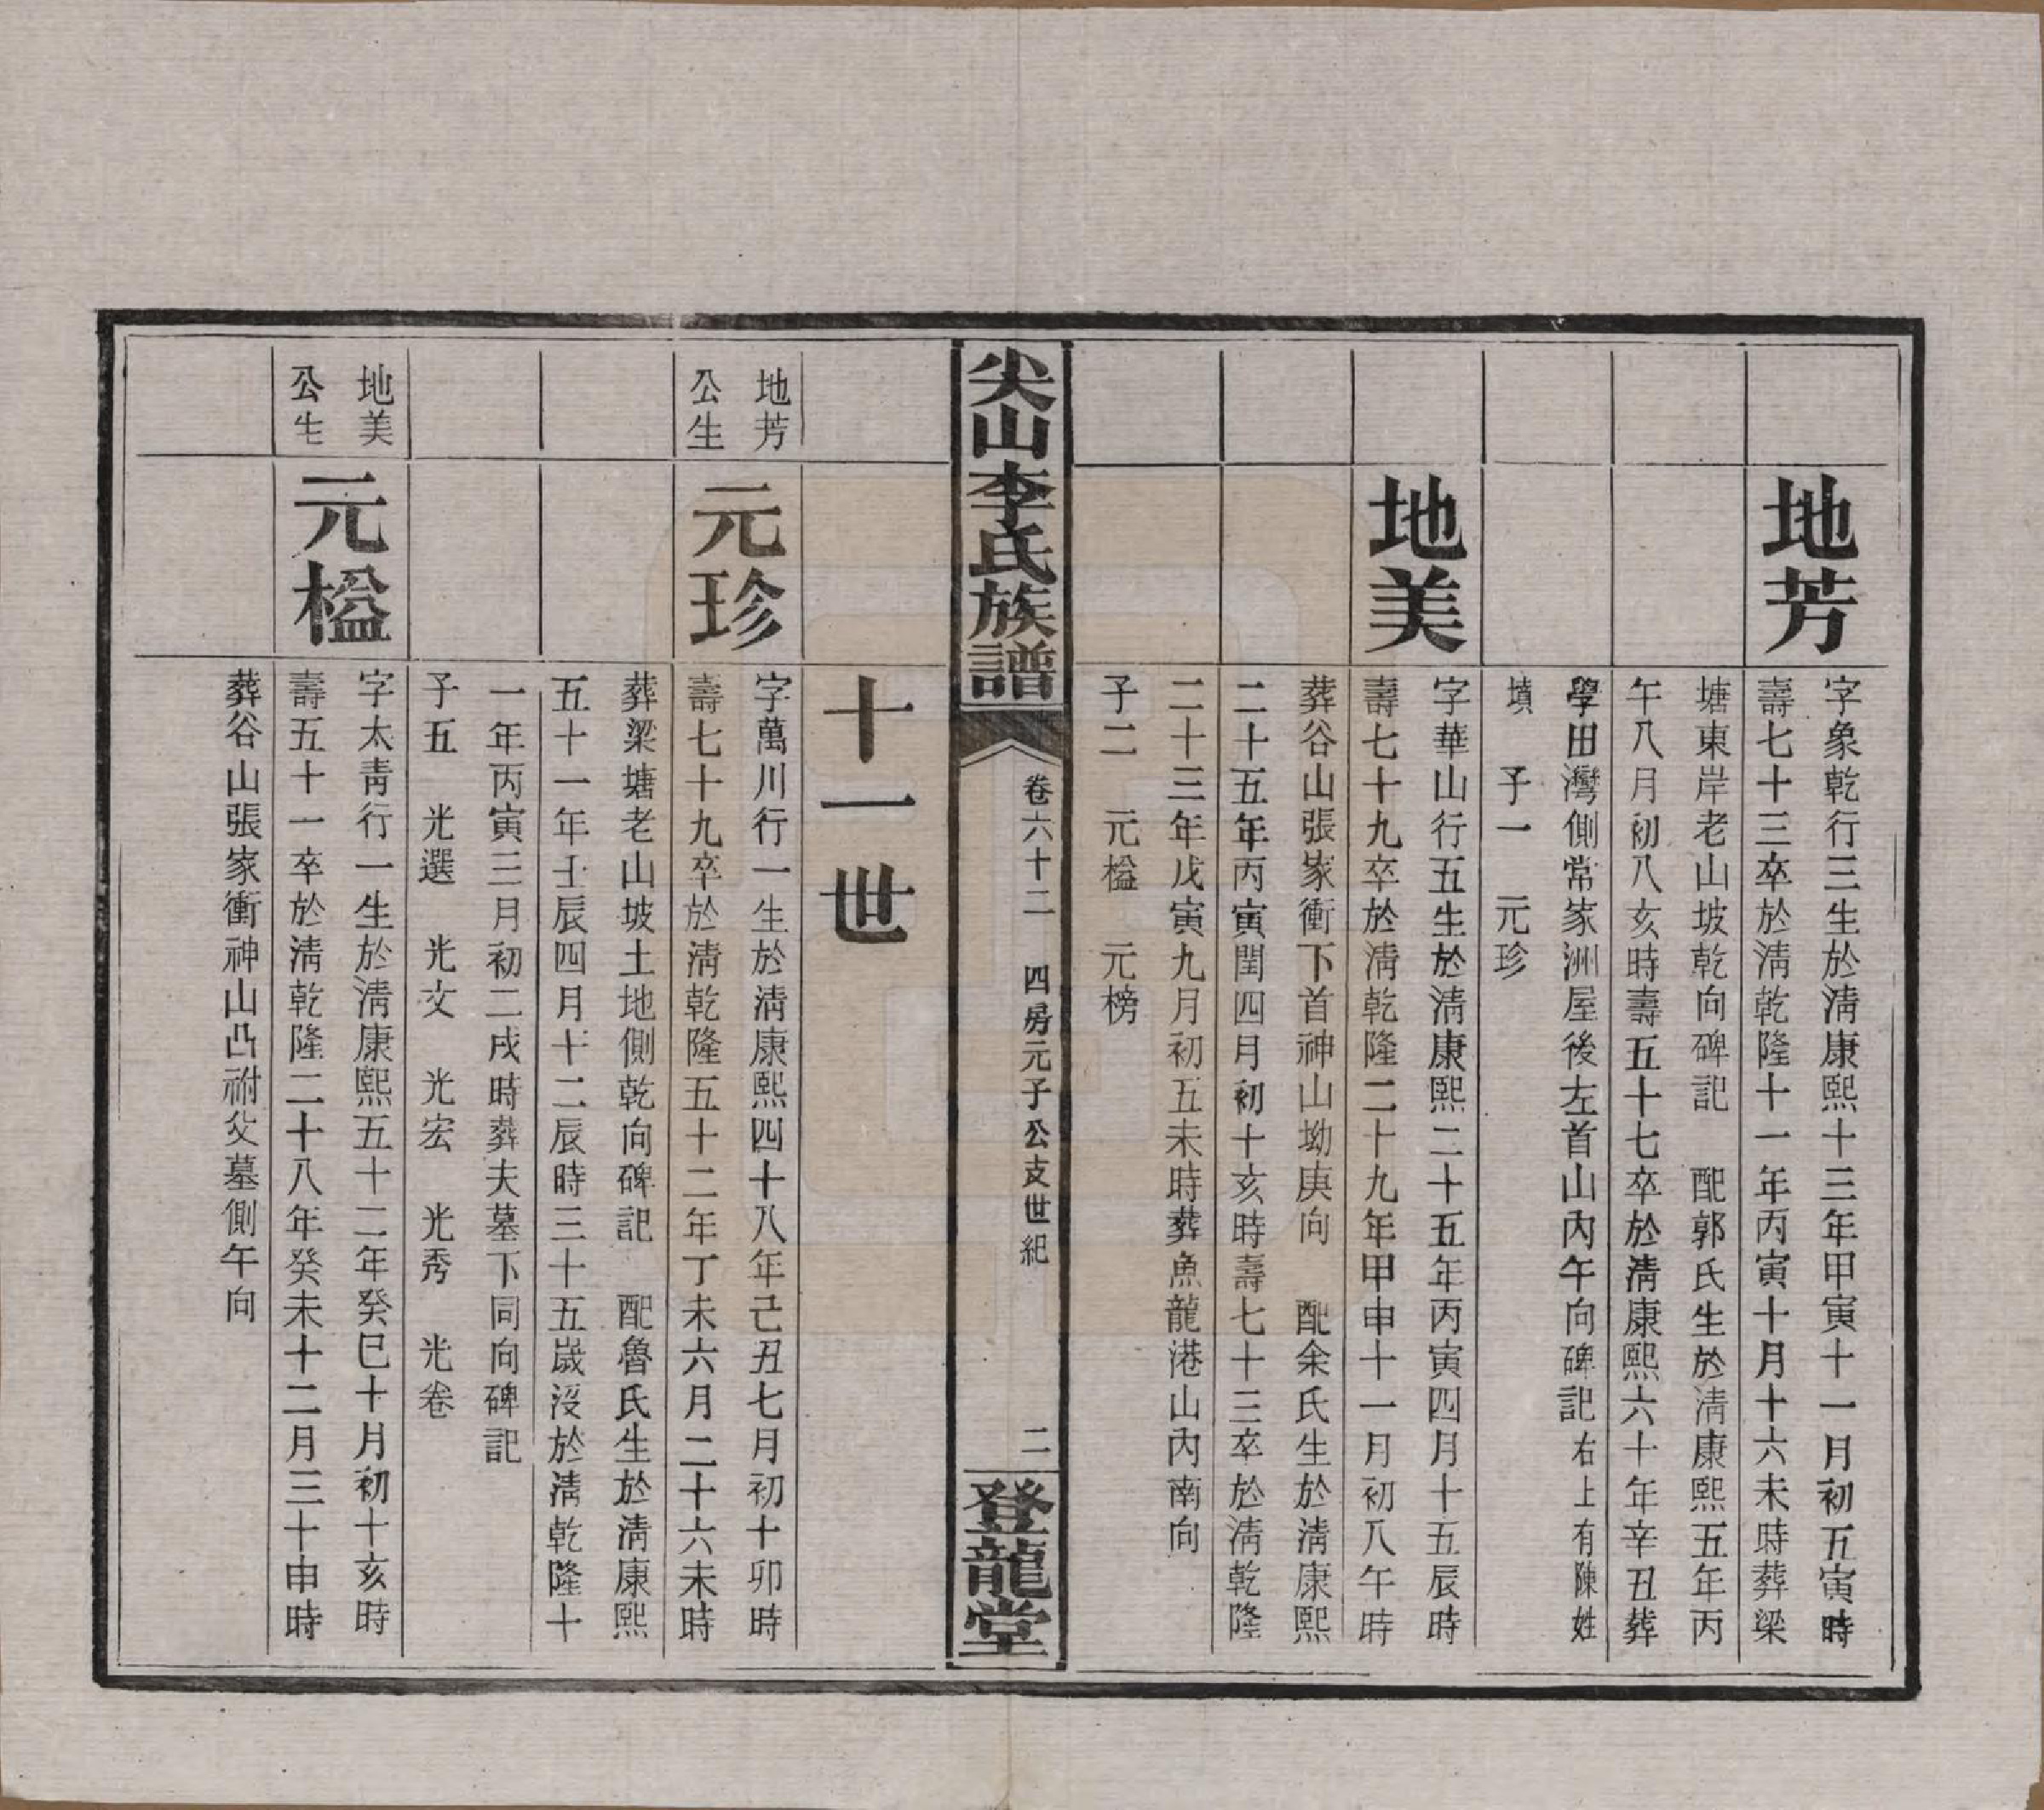 地芳
字象乾行三生於淸康熙十三年甲寅十一月初五寅時
壽七十三卒於淸乾隆十一年丙寅十月十六未時葬梁
塘東岸老山坡乾向碑記　配郭氏生於淸康熙五年丙
午八月初八亥時壽五十七卒於淸康熙六十年辛丑葬
學田灣側常家洲屋後左首山內午向碑記右上有陳姓
墳　子一　元珍
地美
字華山行五生於淸康熙二十五年丙寅四月十五辰時
壽七十九卒於淸乾隆二十九年甲申十一月初八午時
葬谷山張家衝下首神山坳庚向　配余氏生於淸康熙
二十五年丙寅閏四月初十亥時壽七十三卒於淸乾隆
二十三年戊寅九月初五未時葬魚龍港山內南向
子二　元楹　元榜
尖山李氏族譜
卷六十二　四房元子公支世紀
二
登龍堂
十一世
地芳
公生
元珍
字萬川行一生於淸康熙四十八年己丑七月初十卯時
壽七十九卒於淸乾隆五十二年丁未六月二十六未時
葬梁塘老山坡土地側乾向碑記　配魯氏生於淸康熙
五十一年壬辰四月十二辰時三十五歲沒於淸乾隆十
一年丙寅三月初二戌時葬夫墓下同向碑記
子五　光選　光文　光宏　光秀　光卷
地美
公生
元楹
字太靑行一生於淸康熙五十二年癸巳十月初十亥時
壽五十一卒於淸乾隆二十八年癸未十二月三十申時
葬谷山張家衝神山凸祔父墓側午向